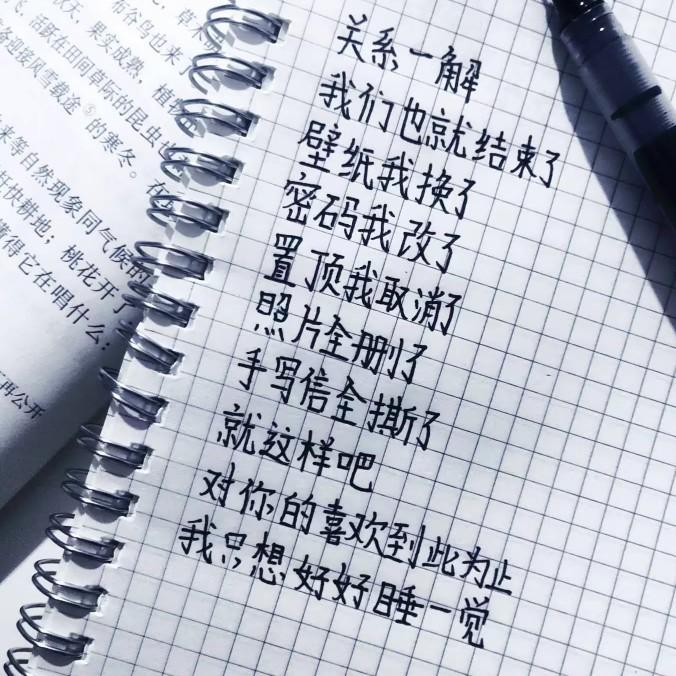 布谷鸟也来了
秋天，果实成熟，植
飞，活跃在田间草际的昆虫也
冬迎接风雪载途⑤的寒冬。在
来等自然现象同气候的
杆快耕地；桃花开了
懂得它在唱什么：
再公开
关系一解
我们也就结束了
壁纸我换了
密码我改了
置顶我取消了
照片全删了
手写信全撕了
就这样吧
对你的喜欢到此为止
我只想好好睡一觉